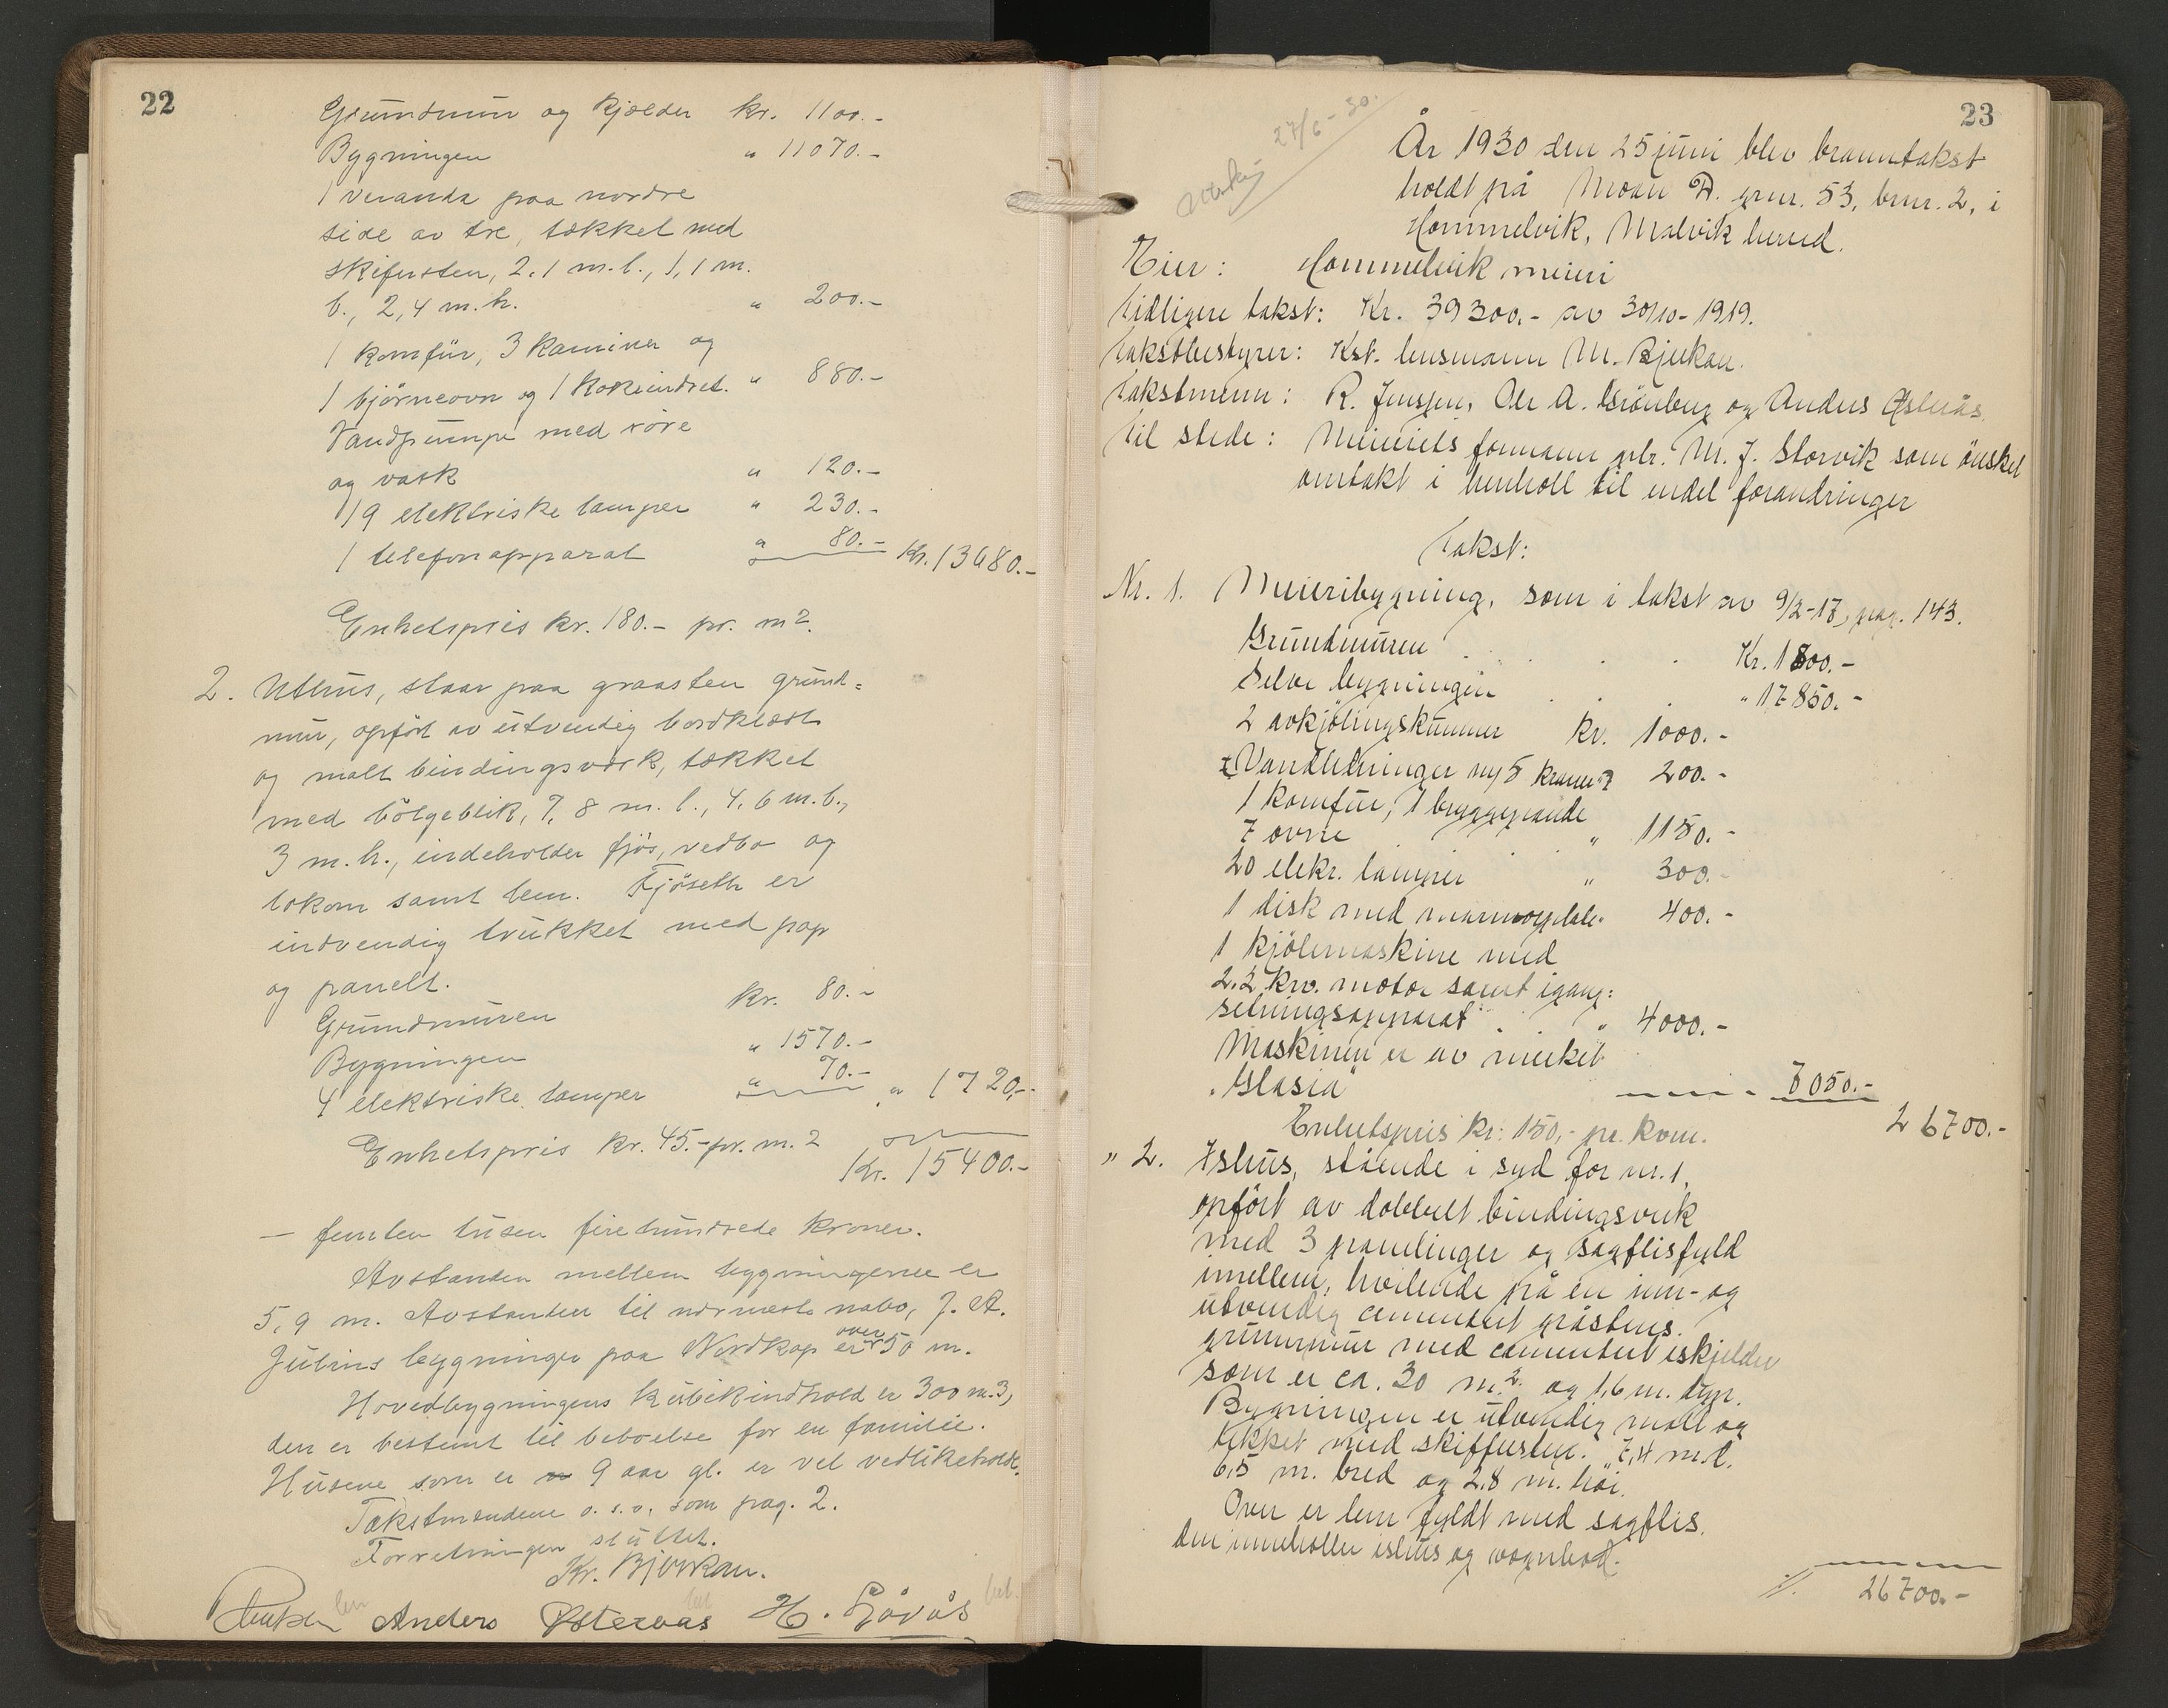 22
Grundmur og kjælder kr. 1100.-
Bygningen " 11070.-
1 veranda paa nordre
side av tre, tækket med
skifersten, 2,1 m.l., 1,1 m.
b., 2,4 m.h. " 200.-
1 komfür, 3 kaminer og
1 björneovn og 1 kokeindret. " 880.-
Vandpumpe med röre
og vask " 120.-
19 elektriske lamper " 230.-
1 telefonapparat " 80.- Kr. 13680.-
Enhetspris kr. 180.- pr. m2.
2. Uthus, staar paa graasten grund=
mur, opfört av utvendig bordklædt
og malt bindingsverk, tækket
med bölgeblik, 7,8 m.l., 4,6 m.b.,
3 m.h., indeholder fjös, vedbo og
lokom samt lem. Fjöseth er
indvendig trukket med pap
og panelt.
Grundmuren kr. 80.-
Bygningen " 1570.-
4 elektriske lamper " 70.- " 1720,-
Enhetspris kr. 45.- pr. m.2
Kr. 15400.-
— femten tusen firehundrede kroner.
Avstanden mellem bygningerne er
5,9 m. Avstanden til nærmeste nabo, J. A.
Julius bygninger paa Nordkap er over 50 m.
Hovedbygningens kubikindhold er 300 m.3,
den er bestemt til beboelse for en familie.
Husene som er 9 aar gl. er vel vedlikeholdt.
Takstmændene o.s.v. som pag. 2.
Forretningen sluttet.
Kr. Bjerkan.
Anders Østeraas H.
23
27/6-30.
År 1930 den 25 juni blev branntakst
holdt på Moan A. gnr. 53, bnr. 2, i
Hommelvik, Malvik herred.
Eier: Hommelvik meieri
Tidligere takst: Kr. 39300.- av 30/10-1919.
Takstbestyrer: Kst. lensmann M. Bjerkan.
Takstmenn: R. Jenssen, Ole A. Grönberg og Anders Østerås.
Til stede: Meieriets formann gbr. M. J. Storvik som önsket
omtakt i henhold til endel forandringer
Takst:
Nr. 1. Meieribygning, som i takst av 9/2-17, pag. 143.
Grundmuren Kr. 1800.-
Selve bygningen " 17850.-
2 avkjölingskummer kr. 1000.-
Vandledninger m/5 kraner " 200.-
1 komfür, 1 bryggepande
7 ovne " 1150.-
20 elekr. lamper " 300.-
1 disk med marmorplate " 400.-
1 kjölemaskine med
2.2 kw. motor samt igang=
setningsapparat " 4000.-
Maskinen er av merket
"Glasia" 7050.-
Enhetspris kr: 150,- pr. kvm. 26700.-
" 2. Ishus, stående i syd for nr. 1,
opfört av dobbelt bindingsverk
med 3 panelinger og sagflisfyld
imellem, hvilende på en inn- og
utvendig cementert gråstens.
grunnmur med cementert iskjelder
som er ca. 30 m.2. og 1,6 m. dyp.
Bygningen er utvendig malt og
tekket med skiffersten. 7,4 m.l.
6,5 m. bred og 2,8 m. høi.
Over er lem fyldt med sagflis.
Den inneholder ishus og vognbod.
26700.-